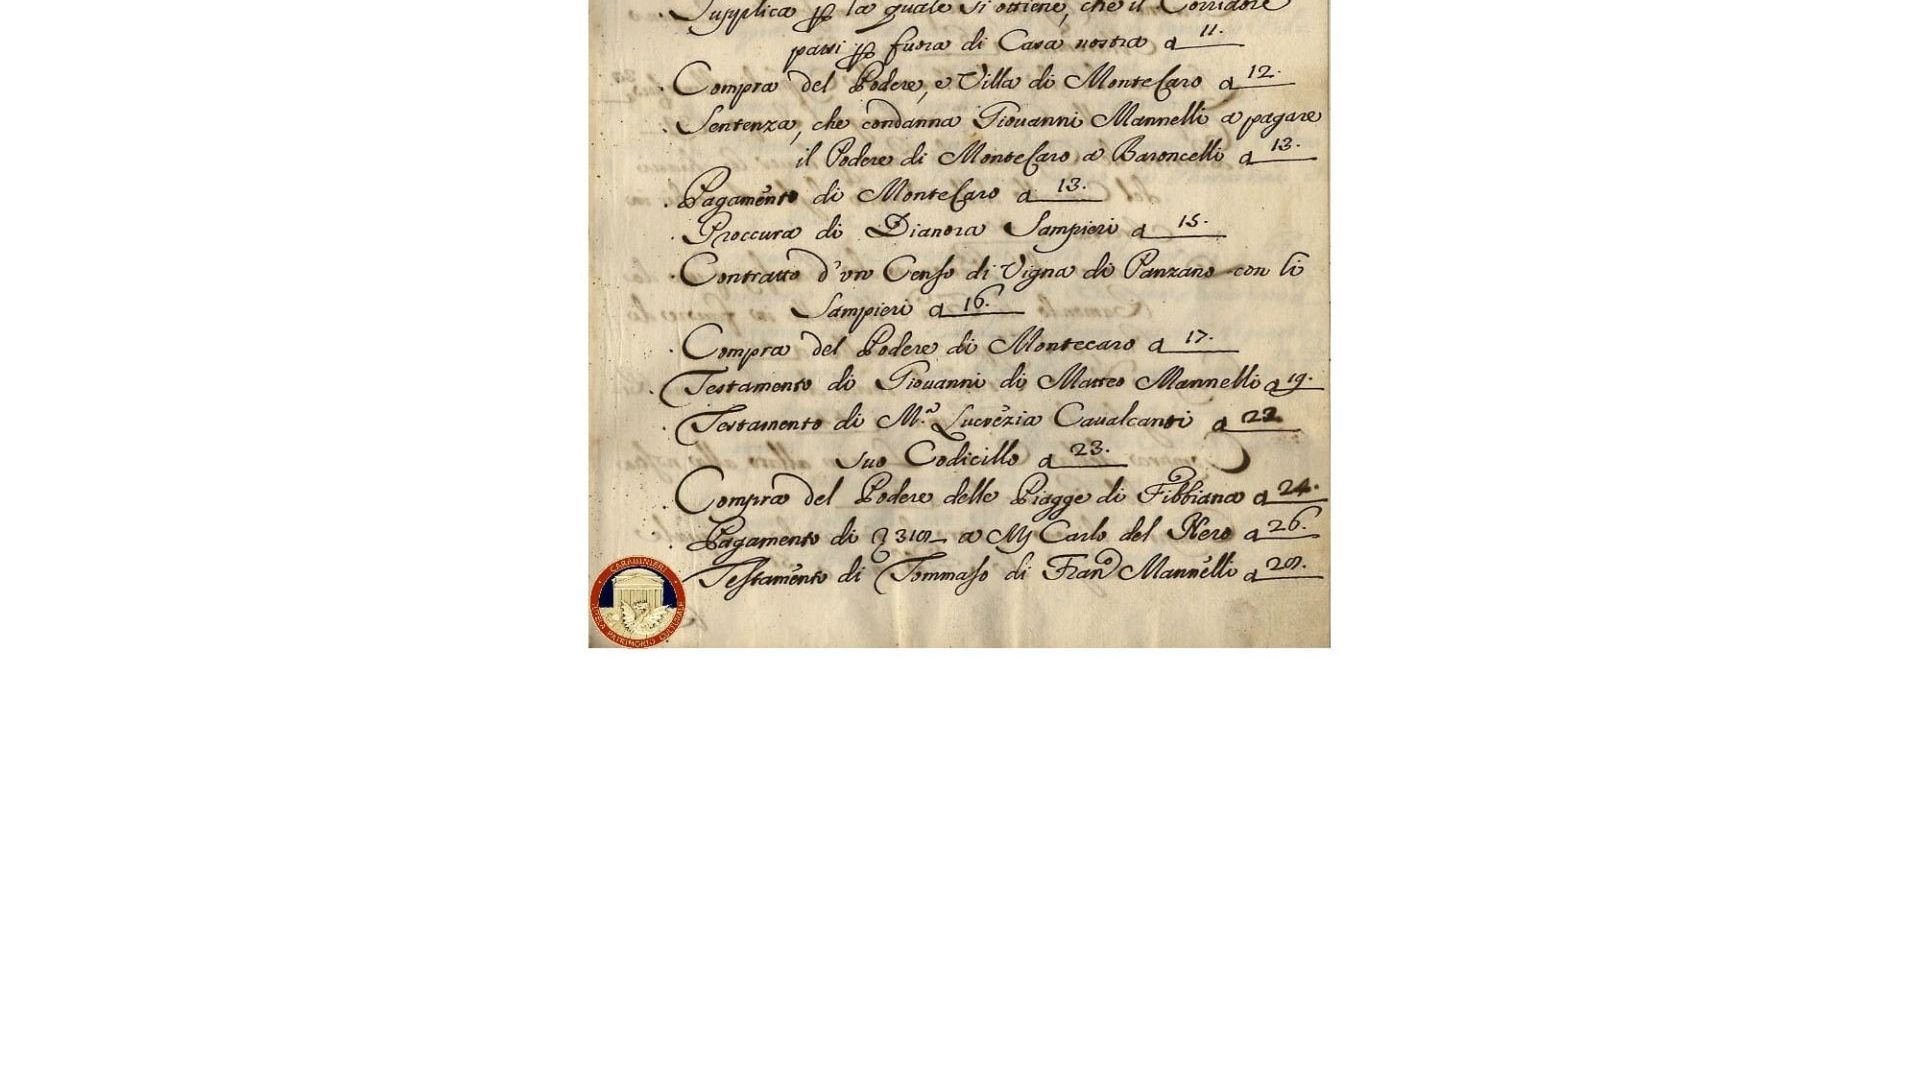 Supplica p la quale si ottiene, che il Corridore
passi p fuora di Casa nostra a 11.
Compra del Podere, e Villa di MonteCaro a 12.
Sentenza, che condanna Giouanni Mannelli a pagare
il Podere di MonteCaro a Baroncelli a 13.
Pagamento di MonteCaro a 13.
Proccura di Dianora Sampieri a 15.
Contratto d'un Censo di Vigna di Panzano con li
Sampieri a 16.
Compra del Podere di Montecaro a 17.
Testamento di Giouanni di Matteo Mannelli a 19.
Testamento di M.ª Lucrezia Caualcanti a 22
suo Codicillo a 23.
Compra del Podere delle Piagge di Fibbiana a 24.
Pagamento di a Carlo del Nero a 26.
Testamento di Tommaso di Fran.º Mannelli a 28.
CARABINIERI
TUTELA PATRIMONIO CULTURALE